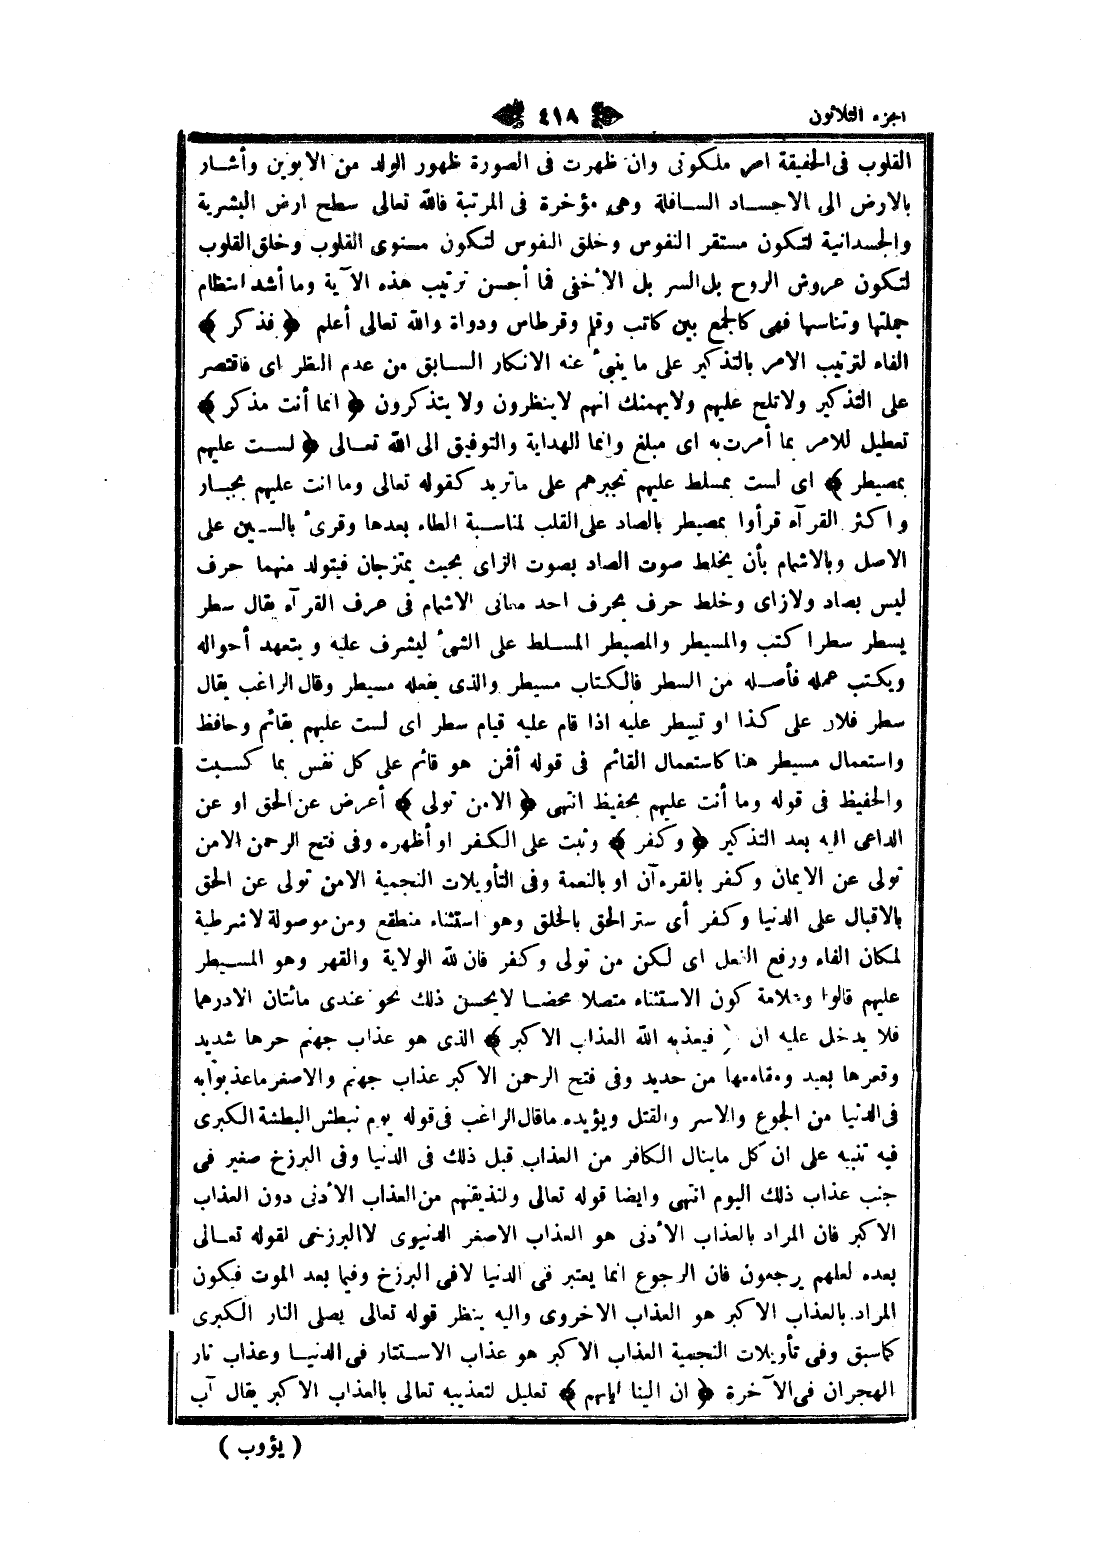 الجزء الثلاثون
٤١٨
القلوب فى الحقيقة امر ملكوتى وان ظهرت فى الصورة ظهور الولد من الابوين وأشار
بالارض الى الاجساد السافلة وهى مؤخرة فى المرتبة فالله تعالى سطح ارض البشرية
والجسدانية لتكون مستقر النفوس وخلق النفوس لتكون مستوى القلوب وخلق القلوب
لتكون عروش الروح بل السر بل الأخفى فما أحسن ترتيب هذه الآية وما أشد انتظام
جملتها وتناسبها فهى كالجمع بين كاتب وقلم وقرطاس ودواة والله تعالى أعلم ﴿ فذكر ﴾
الفاء لترتيب الامر بالتذكير على ما ينبىٴ عنه الانكار السابق من عدم النظر اى فاقتصر
على التذكير ولا تلح عليهم ولا يهمنك انهم لا ينظرون ولا يتذكرون ﴿ انما أنت مذكر ﴾
تعطيل للامر بما أمرت به اى مبلغ وانما الهداية والتوفيق الى الله تعالى ﴿ لست عليهم
بمصيطر ﴾ اى لست بمسلط عليهم تجبرهم على ما تريد كقوله تعالى وما انت عليهم بجبار
واكثر القرآء قرأوا بمصيطر بالصاد على القلب لمناسبة الطاء بعدها وقرىٴ بالسين على
الاصل وبالاشمام بأن يخلط صوت الصاد بصوت الزاى بحيث يمتزجان فيتولد منهما حرف
ليس بصاد ولا زاى وخلط حرف بحرف احد معانى الاشمام فى عرف القرآء يقال سطر
يسطر سطرا كتب والمسيطر والمصيطر المسلط على الشىٴ ليشرف عليه ويتعهد أحواله
ويكتب عمله فأصله من السطر فالكتاب مسيطر والذى يفعله مسيطر وقال الراغب يقال
سطر فلان على كذا او تسيطر عليه اذا قام عليه قيام سطر اى لست عليهم بقائم وحافظ
واستعمال مسيطر هنا كاستعمال القائم فى قوله أفمن هو قائم على كل نفس بما كسبت
والحفيظ فى قوله وما أنت عليهم بحفيظ انتهى ﴿ الا من تولى ﴾ أعرض عن الحق او عن
الداعى اليه بعد التذكير ﴿ وكفر ﴾ وثبت على الكفر او أظهره وفى فتح الرحمن الا من
تولى عن الايمان وكفر بالقرءآن او بالنعمة وفى التأويلات النجمية الا من تولى عن الحق
بالاقبال على الدنيا وكفر أى ستر الحق بالخلق وهو استثناء منطقع ومن موصولة لا شرطية
لمكان الفاء ورفع الفعل اى لكن من تولى وكفر فان لله الولاية والقهر وهو المسيطر
عليهم قالوا وعلامة كون الاستثناء متصلا محضا لا يحسن ذلك نحو عندى مائتان الا درهما
فلا يدخل عليه ان ﴿ فيعذبه الله العذاب الاكبر ﴾ الذى هو عذاب جهنم حرها شديد
وقعرها بعيد ومقامعها من حديد وفى فتح الرحمن الاكبر عذاب جهنم والاصغر ما عذبوا به
فى الدنيا من الجوع والاسر والقتل ويؤيده ما قال الراغب فى قوله يوم نبطش البطشة الكبرى
فيه تنبيه على ان كل ما ينال الكافر من العذاب قبل ذلك فى الدنيا وفى البرزخ صغير فى
جنب عذاب ذلك اليوم انتهى وايضا قوله تعالى ولنذيقنهم من العذاب الأدنى دون العذاب
الاكبر فان المراد بالعذاب الأدنى هو العذاب الاصغر الدنيوى لا البرزخى لقوله تعالى
بعده لعلهم يرجعون فان الرجوع انما يعتبر فى الدنيا لا فى البرزخ وفيما بعد الموت فيكون
المراد بالعذاب الاكبر هو العذاب الاخروى واليه ينظر قوله تعالى يصلى النار الكبرى
كما سبق وفى تأويلات النجمية العذاب الاكبر هو عذاب الاستتار فى الدنيا وعذاب نار
الهجران فى الآخرة ﴿ ان الينا ايابهم ﴾ تعليل لتعذيبه تعالى بالعذاب الاكبر يقال آب
( يؤوب )